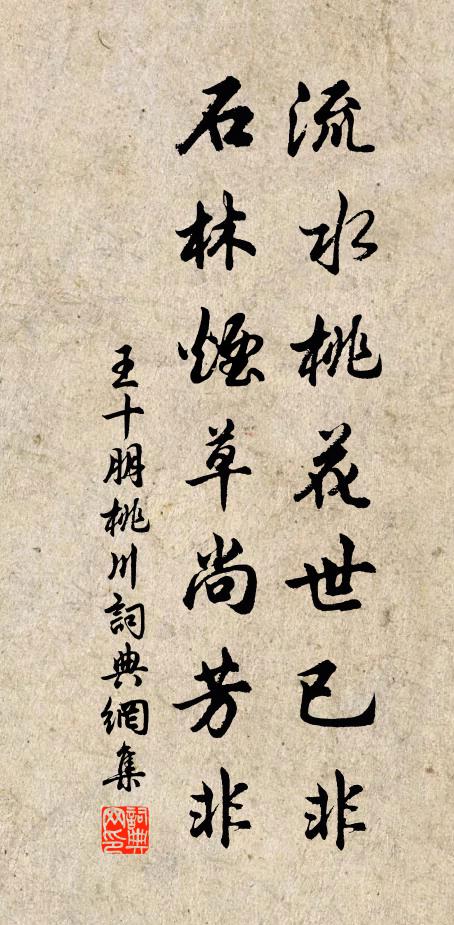 流水桃花世已非
石林煙草尚芳非
王十朋桃川詞典網集
詞典網印